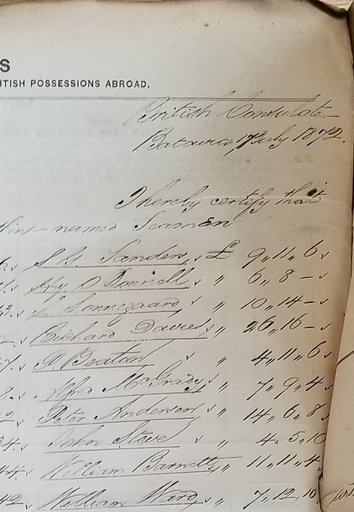 S
ITISH POSSESSIONS ABROAD.
British Consulate
Batavia, July 1872.
I hereby certify that
named Seamen
Sanders £ 9 " 11 " 6
O'Donnell " 6 " 8 " –
Sonnegaard " 10 " 14 " –
Richard Davies " 26 " 16 " –
Beaton " 4 " 11 " 6
McGrady " 7 " 9 " 4
Peter Andersen " 14 " 6 " 8
John Stave " 4 " 5 " 10
William Barnett " 11 " 11 " 4
William Marg " 7 " 12 " 10